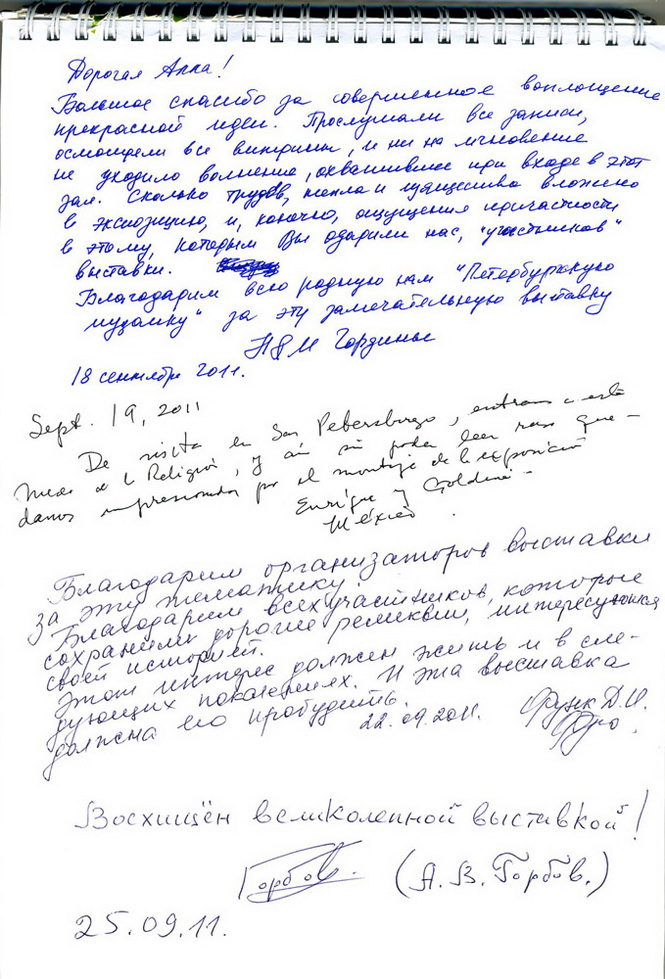 Дорогая Алла!
Большое спасибо за совершенное воплощение
прекрасной идеи. Прослушали все записи,
осмотрели все витрины, и ни на мгновение
не уходило волнение, охватившее при входе в этот
зал. Сколько трудов, тепла и изящества вложено
в экспозицию, и, конечно, ощущения причастности
к этому, которым Вы одарили нас, "участников"
выставки.
Благодарим всю родную нам "Петербургскую
музыку" за эту замечательную выставку
Гордины
18 сентября 2011.
Sept. 19, 2011
De visita en San Petersburgo, entramos a este
Museo de la Religión, y aún sin poder leer ruso que-
damos impresionados por el montaje de la exposición
Enrique y
México.
Благодарим организаторов выставки
за эту тематику.
Благодарим всех участников, которые
сохранили дорогие реликвии, интересуются
своей историей.
Этот интерес должен жить и в сле-
дующих поколениях. И эта выставка
должна его пробудить.
22.09.2011. Д.И.
Восхищён великолепной выставкой!
Горбов. (А.В. Горбов.)
25.09.11.